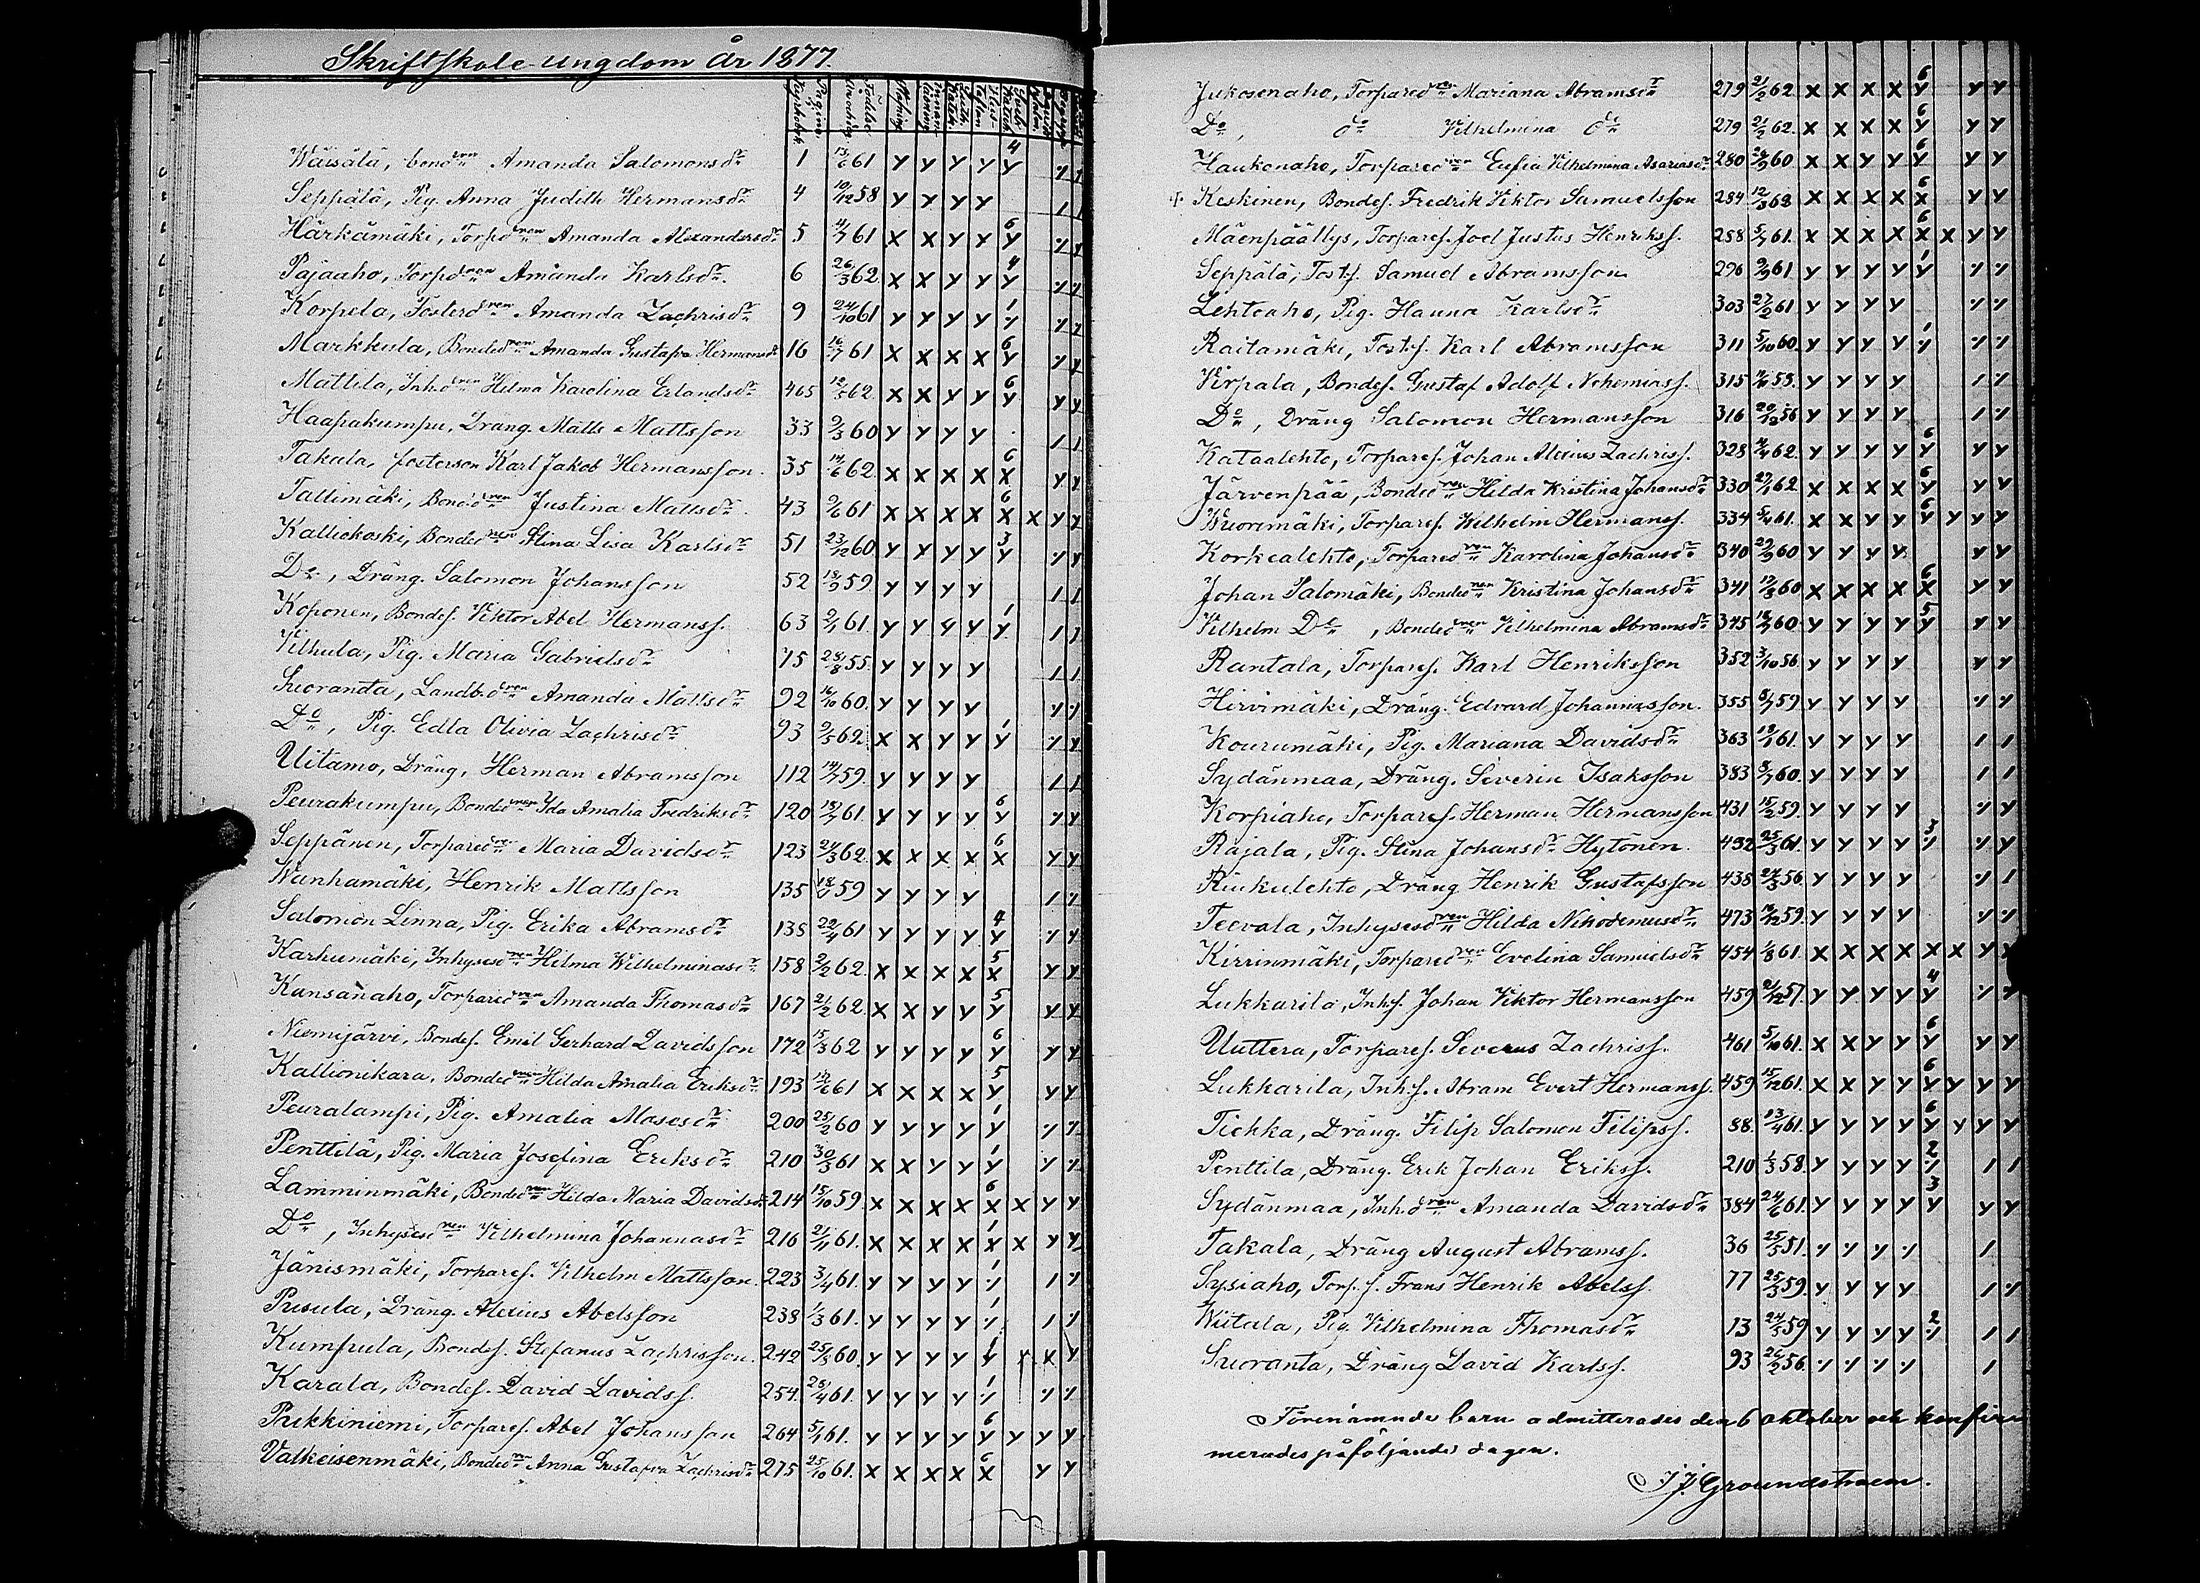 Skriftskole-ungdom år 1877.
Wäisälä, bonddren Amanda Salomonsdr 1 13/6 61 y y y y 4 y
Seppälä, Pig. Anna Judith Hermansdr 4 19/12 58 y y y y
Härkämäki, Torpdren Amanda Alexandersdr 5 4/7 61 x x y y 6 y
Pajaaho, Torpdren Amanda Karlsdr. 6 26/3 62 x x y y 4 y
Korpela, Fosterdren Amanda Zachrisdr 9 24/10 61 y y y y 1
Markkula, Bondedren Amanda Gustafva Hermansdr 16 16/7 61 x x x x 6 y
Mattila, Inh.dren Hilma Karolina Erlandsdr 465 12/5 62 x x y y 6 y y y
Haapakumpu, Dräng. Matts Mattsson 33 9/3 60 y y y y 1 1
Takala, fosterson Karl Jakob Hermansson. 35 14/6 62 x x x x 6 x y y
Tallimäki, Bonddren Justina Mattsdr 43 9/6 61 x x x x 6 x x y y
Kalliokoski, Bondedren Stina Lisa Karlsdr 51 23/12 60 y y y y 3 y
Do, Dräng. Salomon Johansson 52 18/9 59 y y y y 1 1
Koponen, Bondes. Viktor Abel Hermanss. 63 2/1 61 y y y y 1 y 1 1
Vilhula, Pig. Maria Gabrielsdr 75 28/8 55 y y y y 1 1
Suoranta, Landb.dren Amanda Mattsdr 92 16/10 60 y y y y
Do, Pig. Edla Olivia Zachrisdr 93 9/5 62 x x y y 1 y
Uitamo, Dräng, Herman Abramsson 112 14/7 59 y y y y 1 1
Peurakumpu, Bondedren Ida Amalia Fredriksdr 120 18/7 61 y y y y 6 y
Seppänen, Torparedren Maria Davidsdr 123 24/3 62 x x x x 6 x y y
Wanhamäki, Henrik Mattsson 135 18/7 59 y y y y
Salomon Linna, Pig. Erika Abramsdr 138 22/4 61 y y y y 4 y
Karhumäki, Inhysesdren Hilma Wilhelminasdr 158 2/2 62 x x x x 5 x y y
Kansanaho, Torparedren Amanda Thomasdr 167 21/2 62 x x y y 5 y y y
Niemijärvi, Bondes. Emil Gerhard Davidsson 172 15/3 62 y y y y 6 y y y
Kallionikara, Bondedren Hilda Amalia Eriksdr 193 12/6 61 x x x x 5 y y y
Peuralampi, Pig. Amalia Mosesdr 200 25/2 60 y y y y 1 y
Penttilä, Pig. Maria Josefina Eriksdr 210 30/3 61 x x y y 1 y
Lamminmäki, Bondedren Hilda Maria Davidsdr 214 15/10 59 x x x x 6 x x y y
Do, Inhysesdren Vilhelmina Johannasdr 216 21/11 61. x x x x 1 x x y y
Jänismäki, Torpares. Vilhelm Mattsson. 223 3/4 61. y y y y 1
Pusula, Dräng. Alexius Abelsson 238 1/3 61. y y y y 1
Kumpula, Bondes. Stefanus Zachrisson. 242 25/8 60. y y y y 1 y y x y
Karala, Bondes. David Davidss. 254. 28/4 61. y y y y 1
Pukkiniemi, Torpares. Abel Johansson 264 5/1 61. y y y y 6 y y y y
Valkeisenmäki, Bondedren Anna Gustafva Zachrisdr 275 25/10 61. x x x x 6 x y y
Jukosenaho, Torparedren Mariana Abramsdr 279 21/2 62. x x x x 6 y y y
Do, do Vilhelmina do 279 21/2 62. x x x x 6 y y y
Haukonaho, Torparedren Eufia Vilhelmina Asariasdr 280 28/9 60 x x y y 6 y y y
Keskinen, Bondes. Fredrik Viktor Samuelsson 284 12/3 62 x x x x 6 x y y
Mäenpäällys, Torpares. Joel Justus Henrikss. 288 5/7 61. x x x x 6 x x y y
Seppälä, Tosts. Samuel Abramsson 296 9/9 61 y y y y 1 y
Lehtoaho, Pig. Hanna Karlsdr 303 27/2 61 y y y y
Raitamäki, Tosts. Karl Abramsson 311 5/10 60. y y y y 1
Virpala, Bondes. Gustaf Adolf Nehemiass. 315 11/6 59. y y y y
Do, Dräng Salomon Hermansson 316 20/12 56 y y y y
Kataalehto, Torpares. Johan Alexius Zachriss. 328 4/4 62. y y y y 6 y y y
Järvenpää, Bondedren Hilda Kristina Johansdr 330 27/1 62 x x x x 6 y y y
Wuorimäki, Torpares. Wilhelm Hermanss. 334 5/4 61. x x y y 6 y y y y
Korkealehto, Torparedren Karolina Johansdr 340 29/9 60 y y y y y y
Johan Salomäki, Bondedren Kristina Johansdr 341 12/3 60 x x x x 6 x y y
Vilhelm Do, Bondedren Vilhelmina Abramsdr 345 18/7 60 y y y y 5 y y y
Rantala, Torpares. Karl Henriksson 352 3/10 56 y y y y y y
Hirvimäki, Dräng. Edvard Johannasson. 355 8/7 59 y y y y
Kourumäki, Pig. Mariana Davidsdr 363 12/1 61. y y y y 1 1
Sydänmaa, Dräng. Severin Isaksson 383 8/7 60. y y y y 1 1
Korpiaho, Torpares. Herman Hermansson 431 15/2 59. y y y y
Rajala, Pig. Stina Johansdr Hytönen. 432 25/3 61. y y y y 3
Riukulehto, Dräng Henrik Gustafsson 438 24/3 56. y y y y
Teevala, Inhysesdren Hilda Nikodemusdr 473 16/12 59. y y y y
Kirrinmäki, Torparedren Evelina Samuelsdr 454 1/8 61. x x x x x x y x
Lukkarila, Inh.s. Johan Viktor Hermansson 459 21/12 57. y y y y 4 y
Uuttera, Torpares. Severus Zachriss. 461 5/10 61. x x y y 6 y y y
Lukkarila, Inh.s. Abram Evert Hermanss. 459 15/12 61. x x y y 6 y y y y
Tiehka, Dräng. Filip Salomon Filipss. 88. 13/4 61. y y y y 6 y y y y
Penttila, Dräng. Erik Johan Erikss. 210 1/3 58. y y y y 2 1 1
Sydänmaa, Inh.dren Amanda Davidsdr 384 24/6 61. y y y y 3 y y y
Takala, Dräng August Abramss. 36 25/5 51. 1
Sysiaho, Torp.s. Frans Henrik Abelss. 77 25/3 59. y y y y
Wiitala, Pig. Vilhelmina Thomasdr 13 24/5 59 y y y y 2 1 1
Suoranta, Dräng David Karlss. 93 26/2 56. 1
Förenämnde barn admitterades den 6 oktober och konfir-
merades påföljande dagen.
J. J. Groundstroem.